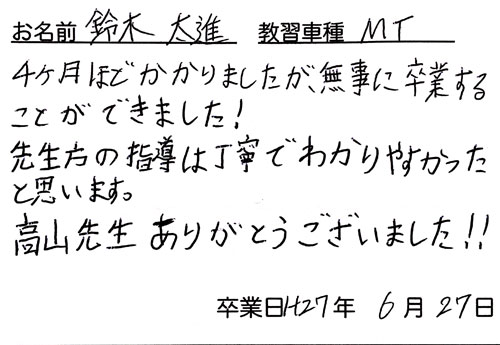 お名前 鈴木 太進 教習車種 MT
4ケ月ほどかかりましたが、無事に卒業する
ことができました!
先生方の指導は丁寧でわかりやすかった
と思います。
高山先生 ありがとうございました!!
卒業日H27年 6月27日